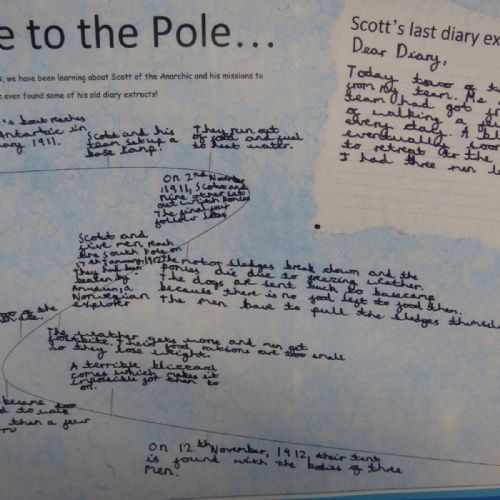 e to the Pole...
s, we have been learning about Scott of the Anarchic and his missions to
e even found some of his old diary extracts!
's boat reaches
Antartic in
ary 1911.
Scott and his
team set up a
base camp.
They run out
of food and fuel
to heat water.
On 2nd November
1911, Scott and
nine other set
out with
The final four
follow
Scott and
five men reach
the South Pole on
17th January, 1912
They had been
beaten by
a
Norwegian
explorer
The motor sledges break down and the
ponies die due to freezing weather.
The dogs are sent back to basecamp
because there is no food left to feed them.
The men have to pull the sledges themsel
the
The weather gets worse and men get
frostbite. Their food rations are too small
so they lose weight.
A terrible blizzard
comes which makes it
impossible for them to
on.
became too
to walk
then a few
On 12th November, 1912, their tent
is found with the bodies of three
men.
Scott's last diary ex
Dear Diary,
Today two of t
from my team. Me
team had got fr
as walking a
every day. A bli
eventually soon
to retreat to the
I had three men le